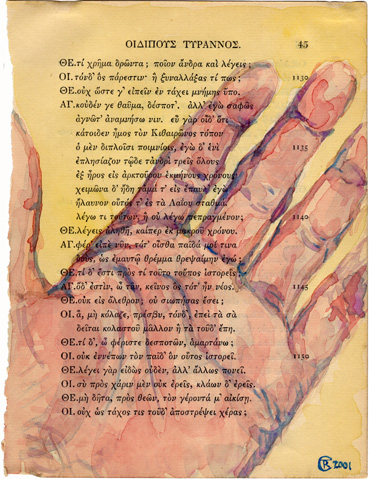 ΟΙΔΙΠΟΥΣ ΤΥΡΑΝΝΟΣ. 45
ΘΕ. τί χρῆμα δρῶντα; ποῖον ἄνδρα καὶ λέγεις;
ΟΙ. τόνδ' ὃς πάρεστιν· ἢ ξυναλλάξας τί πως; 1130
ΘΕ. οὐχ ὥστε γ' εἰπεῖν ἐν τάχει μνήμης ὕπο.
ΑΓ. κοὐδέν γε θαῦμα, δέσποτ'. ἀλλ' ἐγὼ σαφῶς
ἀγνῶτ' ἀναμνήσω νιν. εὖ γὰρ οἶδ' ὅτι
κάτοιδεν ἦμος τὸν Κιθαιρῶνος τόπον
ὁ μὲν διπλοῖσι ποιμνίοις, ἐγὼ δ' ἑνὶ 1135
ἐπλησίαζον τῷδε τἀνδρὶ τρεῖς ὅλους
ἐξ ἦρος εἰς ἀρκτοῦρον ἐκμήνους χρόνους·
χειμῶνα δ' ἤδη τἀμά τ' εἰς ἔπαυλ' ἐγὼ
ἤλαυνον οὗτός τ' εἰς τὰ Λαΐου σταθμά.
λέγω τι τούτων, ἢ οὐ λέγω πεπραγμένον; 1140
ΘΕ. λέγεις ἀληθῆ, καίπερ ἐκ μακροῦ χρόνου.
ΑΓ. φέρ' εἰπὲ νῦν, τότ' οἶσθα παῖδά μοί τινα
δούς, ὡς ἐμαυτῷ θρέμμα θρεψαίμην ἐγώ;
ΘΕ. τί δ' ἔστι; πρὸς τί τοῦτο τοὔπος ἱστορεῖς;
ΑΓ. ὅδ' ἐστίν, ὦ τᾶν, κεῖνος ὃς τότ' ἦν νέος. 1145
ΘΕ. οὐκ εἰς ὄλεθρον; οὐ σιωπήσας ἔσει;
ΟΙ. ἆ, μὴ κόλαζε, πρέσβυ, τόνδ', ἐπεὶ τὰ σὰ
δεῖται κολαστοῦ μᾶλλον ἢ τὰ τοῦδ' ἔπη.
ΘΕ. τί δ', ὦ φέριστε δεσποτῶν, ἁμαρτάνω;
ΟΙ. οὐκ ἐννέπων τὸν παῖδ' ὃν οὗτος ἱστορεῖ. 1150
ΘΕ. λέγει γὰρ εἰδὼς οὐδέν, ἀλλ' ἄλλως πονεῖ.
ΟΙ. σὺ πρὸς χάριν μὲν οὐκ ἐρεῖς, κλάων δ' ἐρεῖς.
ΘΕ. μὴ δῆτα, πρὸς θεῶν, τὸν γέροντά μ' αἰκίσῃ.
ΟΙ. οὐχ ὡς τάχος τις τοῦδ' ἀποστρέψει χέρας;
2001